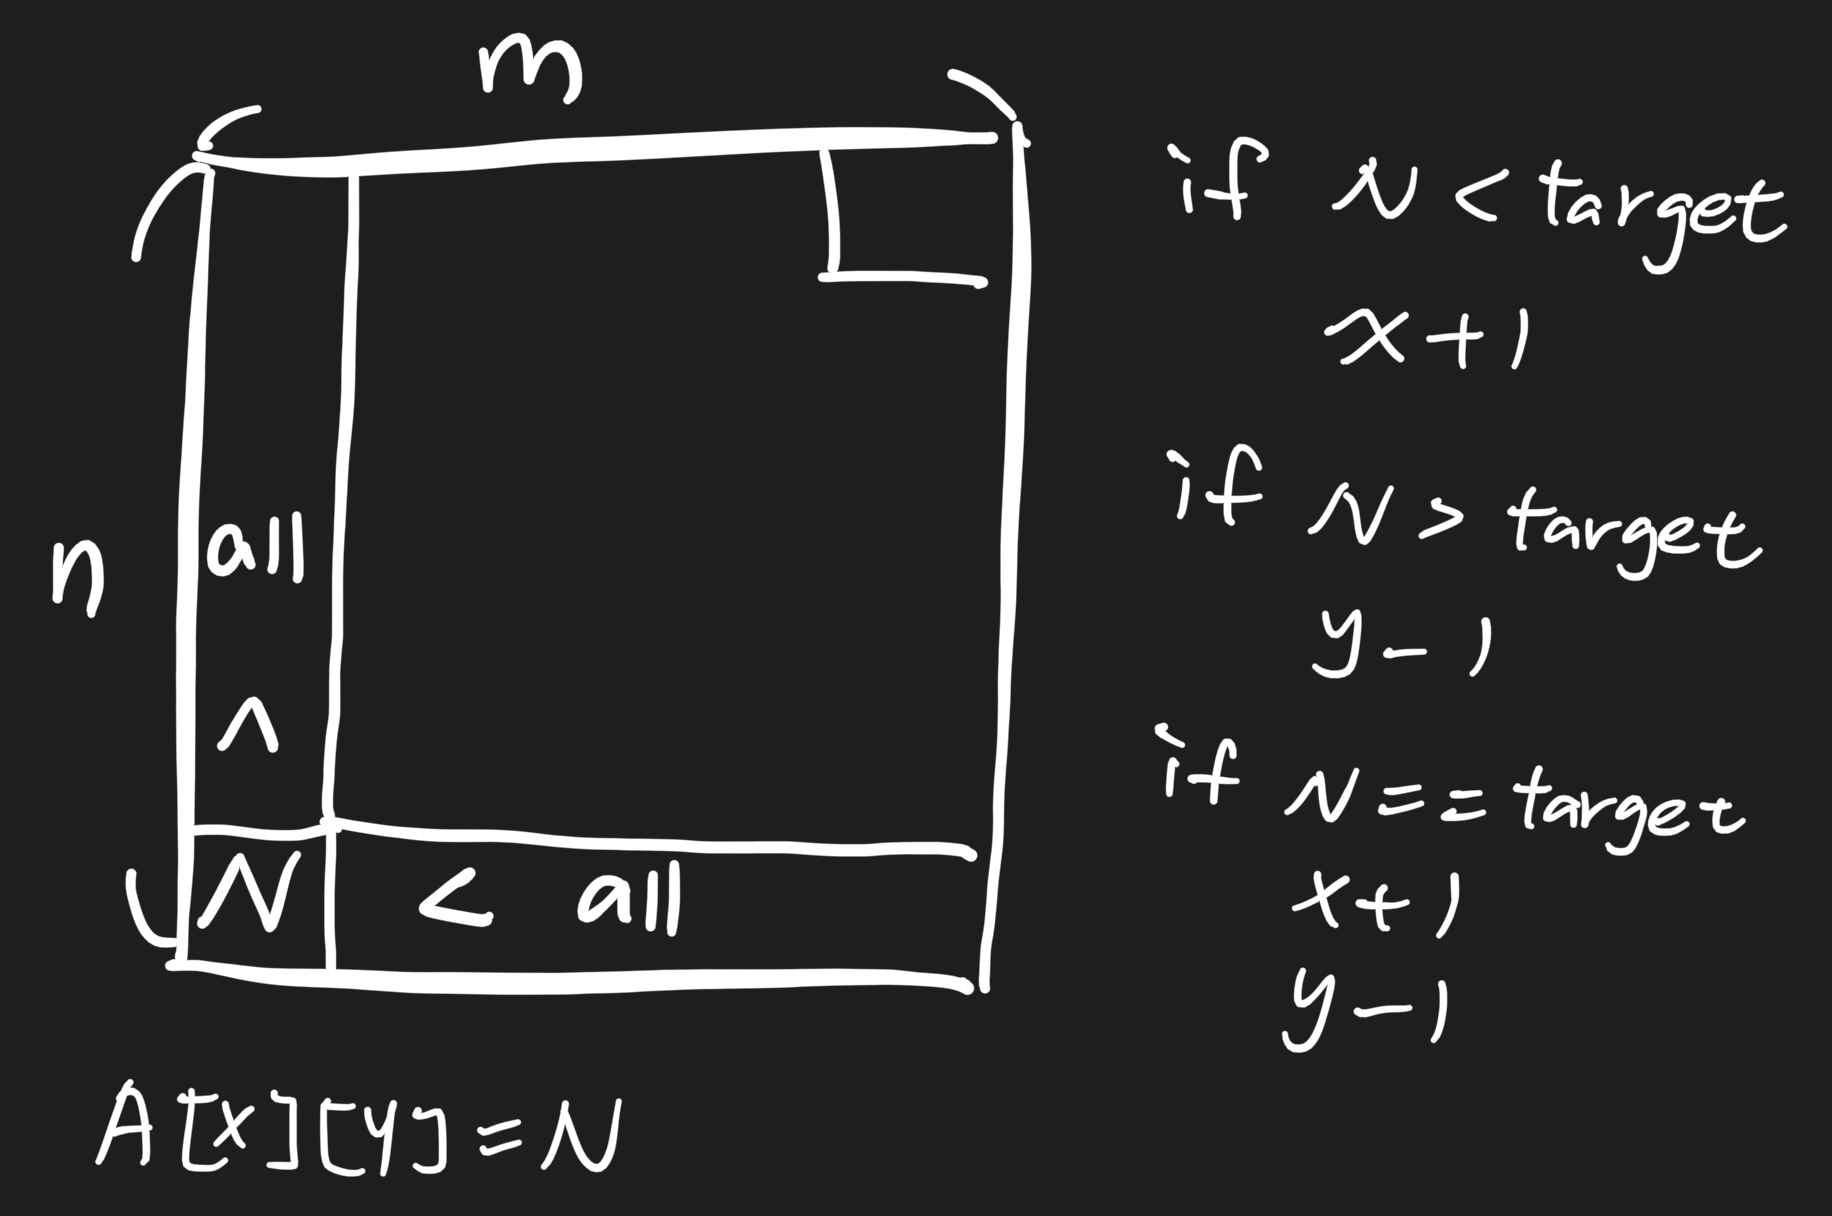 m
n
all
^
N < all
A[x][y]=N
if N < target
x+1
if N > target
y-1
if N == target
x+1
y-1